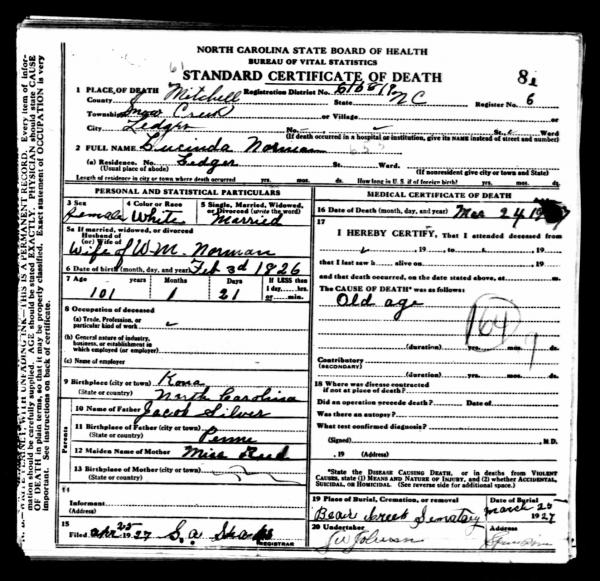 61
NORTH CAROLINA STATE BOARD OF HEALTH
BUREAU OF VITAL STATISTICS
STANDARD CERTIFICATE OF DEATH
81
1 PLACE OF DEATH Registration District No.
County Mitchell State NC Register No. 6
Township Snow Creek or Village
City Ledger No. St., Ward
(If death occurred in a hospital or institution, give its NAME instead of street and number)
2 FULL NAME Lucinda Norman 655
(a) Residence. No. Ledger St. Ward
(Usual place of abode) (If nonresident give city or town and State)
Length of residence in city or town where death occurred yrs. mos. ds. How long in U. S. if of foreign birth? yrs. mos. ds.
PERSONAL AND STATISTICAL PARTICULARS
3 Sex
Female
4 Color or Race
White
5 Single, Married, Widowed,
or Divorced (write the word)
Married
5a If married, widowed, or divorced
Husband of
(or) Wife of
Wife of W.M. Norman
6 Date of birth (month, day, and year) Feb 3d 1826
7 Age years Months Days If LESS than
1 day, hrs.
or min.
101 1 21
8 Occupation of deceased
(a) Trade, Profession, or
particular kind of work
(b) General nature of industry,
business, or establishment in
which employed (or employer)
(c) Name of employer
9 Birthplace (city or town) Kona
(State or country) North Carolina
Parents
10 Name of Father Jacob Silver
11 Birthplace of Father (city or town)
(State or country) Penne
12 Maiden Name of Mother Miss Reed
13 Birthplace of Mother (city or town)
(State or country)
14
Informant
(Address)
15
Filed Apr 25 1927 S.a
REGISTRAR
MEDICAL CERTIFICATE OF DEATH
16 Date of Death (month, day, and year) Mar 24
17
I HEREBY CERTIFY, That I attended deceased from
, 19 , to , 19
that I last saw h alive on , 19
and that death occurred, on the date stated above, at m.
The CAUSE OF DEATH* was as follows:
Old age
164
9
(duration) yrs. mos. ds.
Contributory
(SECONDARY)
(duration) yrs. mos. ds.
18 Where was disease contracted
if not at place of death?
Did an operation precede death? Date of
Was there an autopsy?
What test confirmed diagnosis?
(Signed) M.D.
, 19 (Address)
*State the DISEASE CAUSING DEATH, or in deaths from VIOLENT
CAUSES, state (1) MEANS AND NATURE OF INJURY, and (2) whether ACCIDENTAL,
SUICIDAL, or HOMICIDAL. (See reverse side for additional space.)
19 Place of Burial, Cremation, or removal Date of Burial
Bear Creek Sematery March 25
1927
20 Undertaker Address
J W Johnson
WRITE PLAINLY, WITH UNFADING INK—THIS IS A PERMANENT RECORD. Every item of infor-
mation should be carefully supplied. AGE should be stated EXACTLY. PHYSICIAN should state CAUSE
OF DEATH in plain terms, so that it may be properly classified. Exact statement of OCCUPATION is very
important. See instructions on back of certificate.